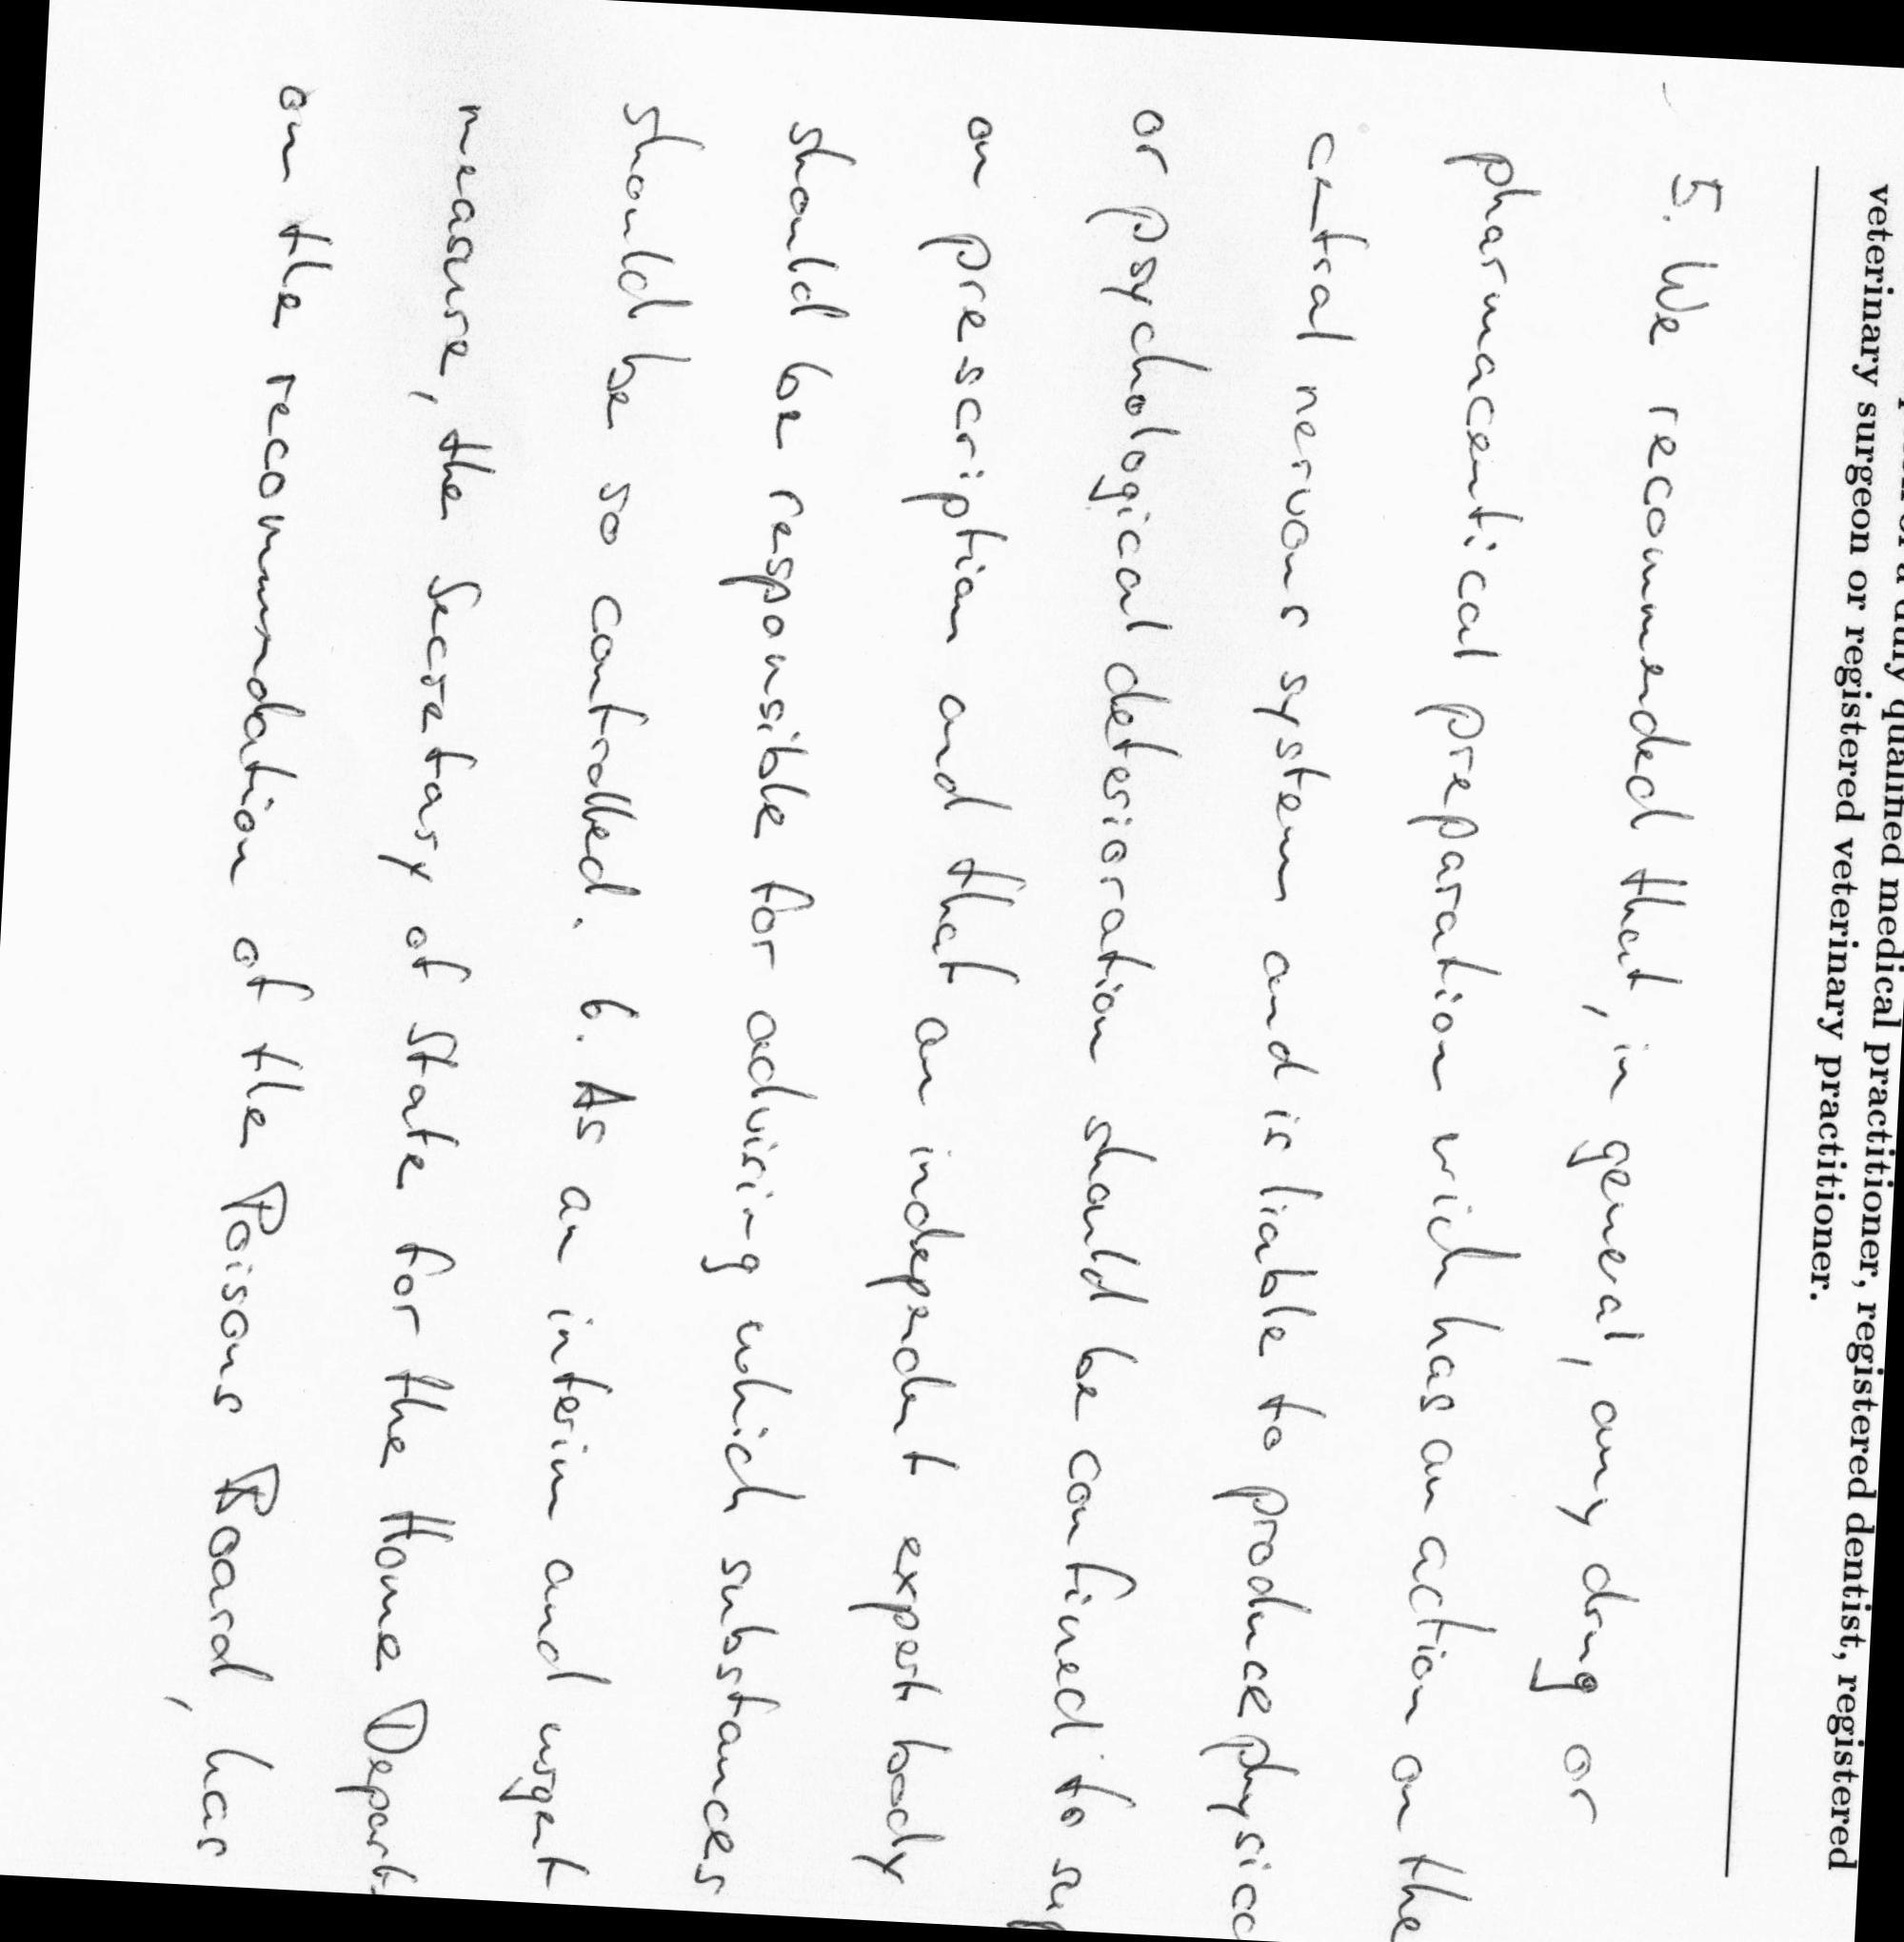 a duly qualified medical practitioner, registered dentist, registered
veterinary surgeon or registered veterinary practitioner.
5. We recommended that, in general, any drug or
pharmacentical preparation wich has an action on the
central nervous system and is liable to produce physical
or psychological deterioration should be confined to
on prescription and that an independent expert body
should be responsible for advising which substances
should be so controlled. 6. As an interim and urgent
measure, the Secretary of State for the Home Depart.
on the recommendation of the Poisons Board, has